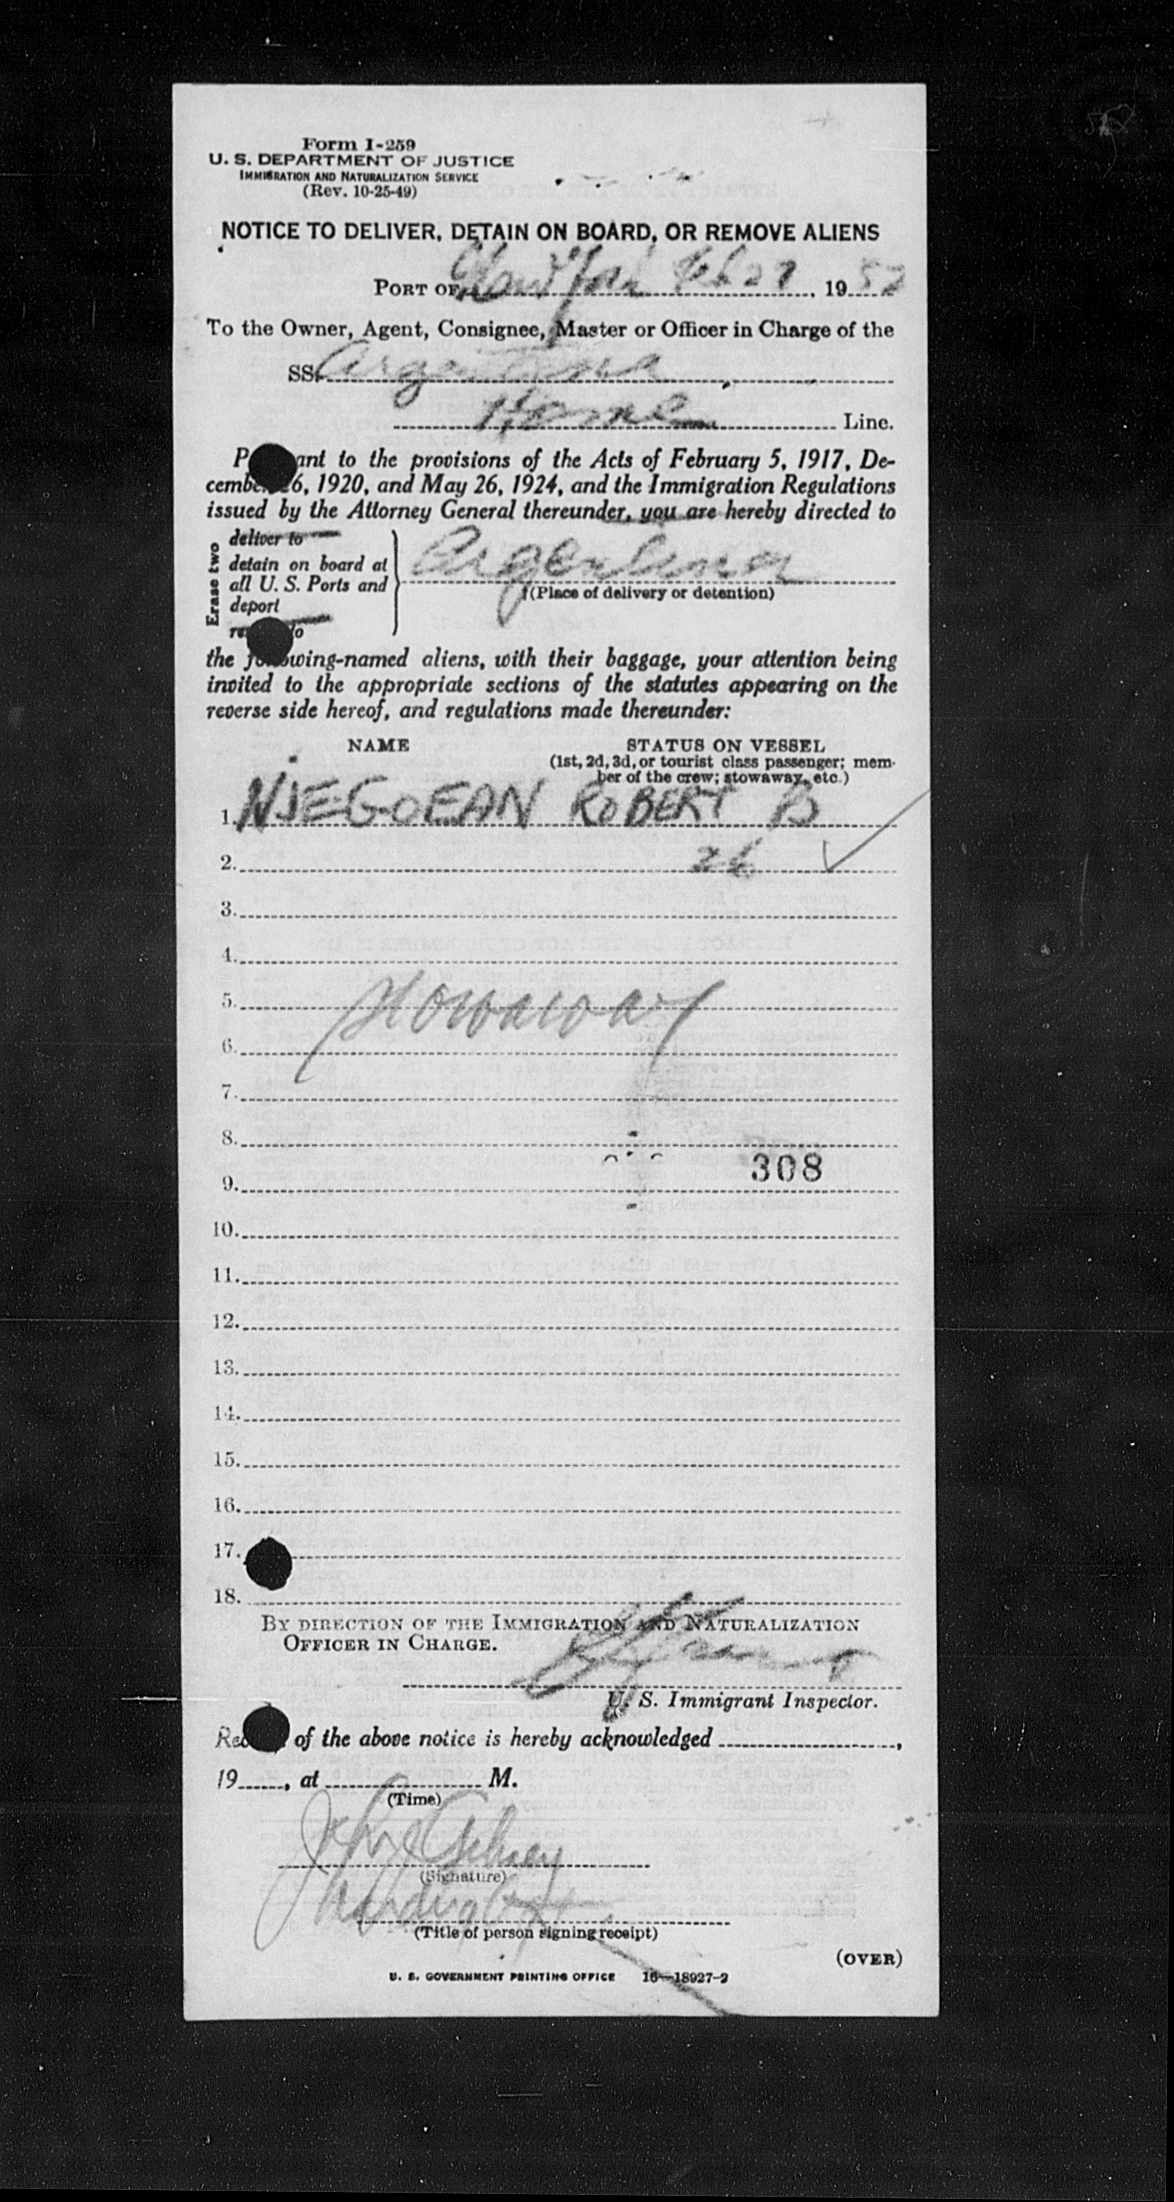 Form I-259
U. S. DEPARTMENT OF JUSTICE
IMMIGRATION AND NATURALIZATION SERVICE
(Rev. 10-25-49)
NOTICE TO DELIVER, DETAIN ON BOARD, OR REMOVE ALIENS
PORT OF New York Feb 27, 1952
To the Owner, Agent, Consignee, Master or Officer in Charge of the
SS. Argentina
Home Line.
P ant to the provisions of the Acts of February 5, 1917, De-
cember 26, 1920, and May 26, 1924, and the Immigration Regulations
issued by the Attorney General thereunder, you are hereby directed to
Erase two
deliver to
detain on board at
all U. S. Ports and
deport
re to
Argentina
(Place of delivery or detention)
the following-named aliens, with their baggage, your attention being
invited to the appropriate sections of the statutes appearing on the
reverse side hereof, and regulations made thereunder:
NAME STATUS ON VESSEL
(1st, 2d, 3d, or tourist class passenger; mem-
ber of the crew; stowaway, etc.)
1. NJEGOEAN ROBERT B
2. 26
3.
4.
5. Stowaway
6.
7.
8.
308
9.
10.
11.
12.
13.
14.
15.
16.
17.
18.
BY DIRECTION OF THE IMMIGRATION AND NATURALIZATION
OFFICER IN CHARGE.
U. S. Immigrant Inspector.
Rec of the above notice is hereby acknowledged ,
19 , at M.
(Time)
John
(Signature)
(Title of person signing receipt)
(OVER)
U. S. GOVERNMENT PRINTING OFFICE 16—18927-2